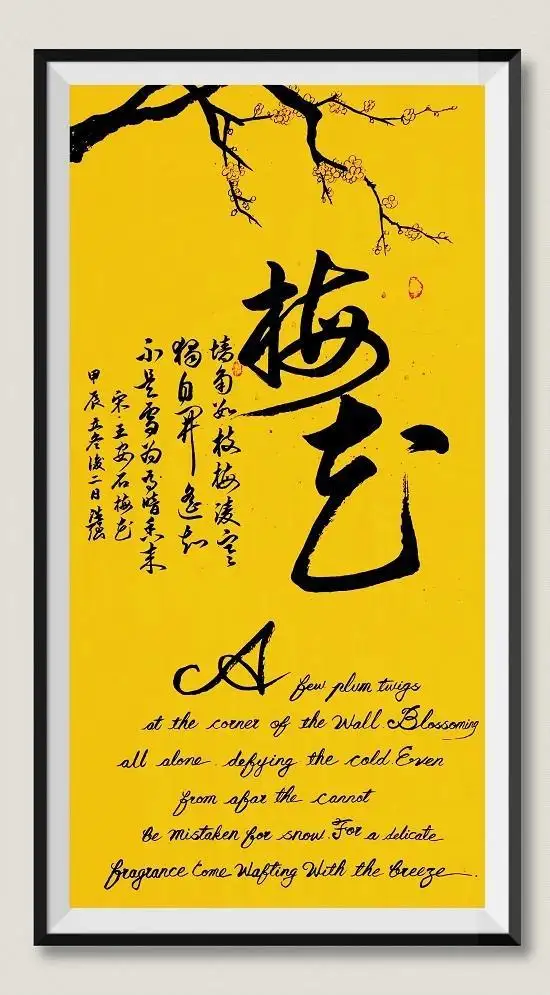 梅花
墙角数枝梅凌寒
獨自开遥知
不是雪为有暗香来
宋王安石梅花
甲辰立冬後二日
A few plum twigs
at the corner of the Wall Blossoming
all alone. defying the cold Even
from afar the cannot
be mistaken for snow. For a delicate
fragrance Come Wafting With the breeze.